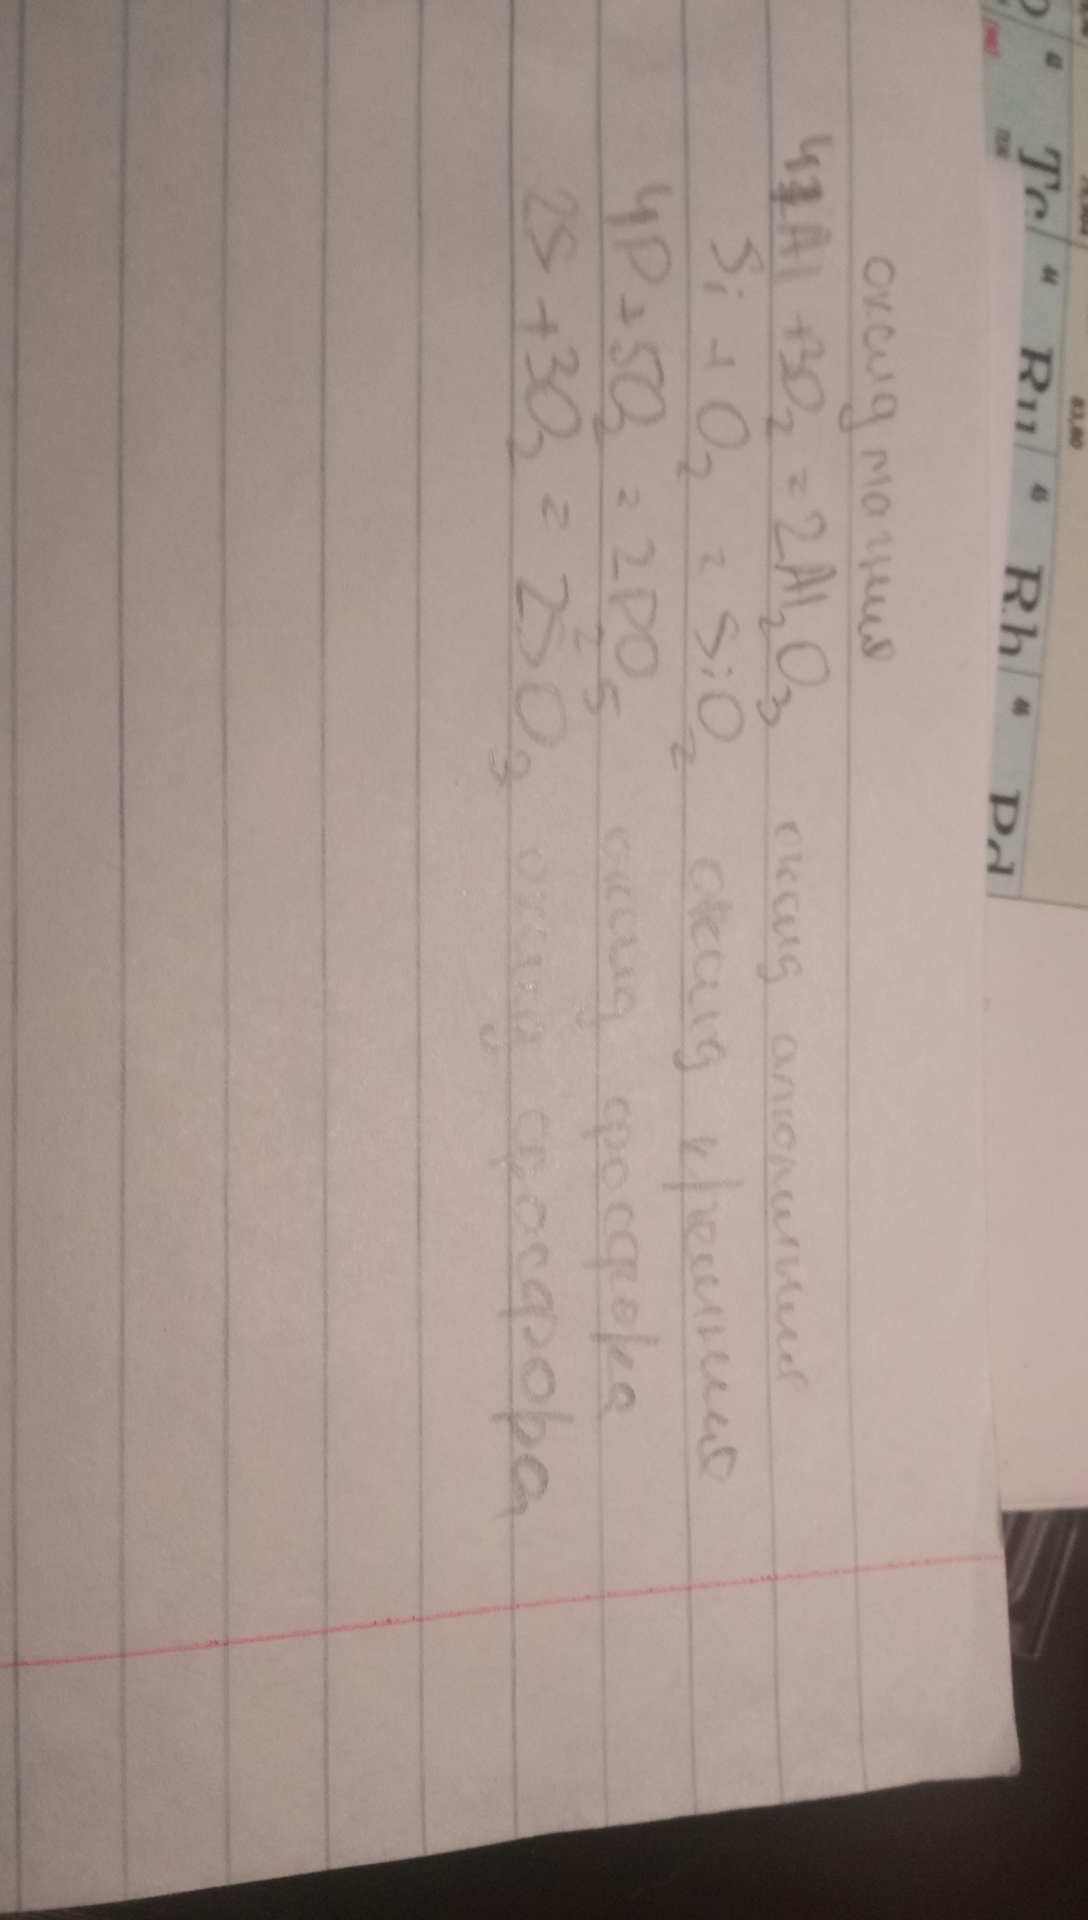 45 Rh 46 Pd
44 Ru
Tc
83,80
оксид магния
4Al + 3O₂ = 2Al₂O₃ оксид алюминия
Si + O₂ = SiO₂ оксид кремния
4P + 5O₂ = 2P₂O₅ оксид фосфора
2S + 3O₂ = 2SO₃ оксид фосфора